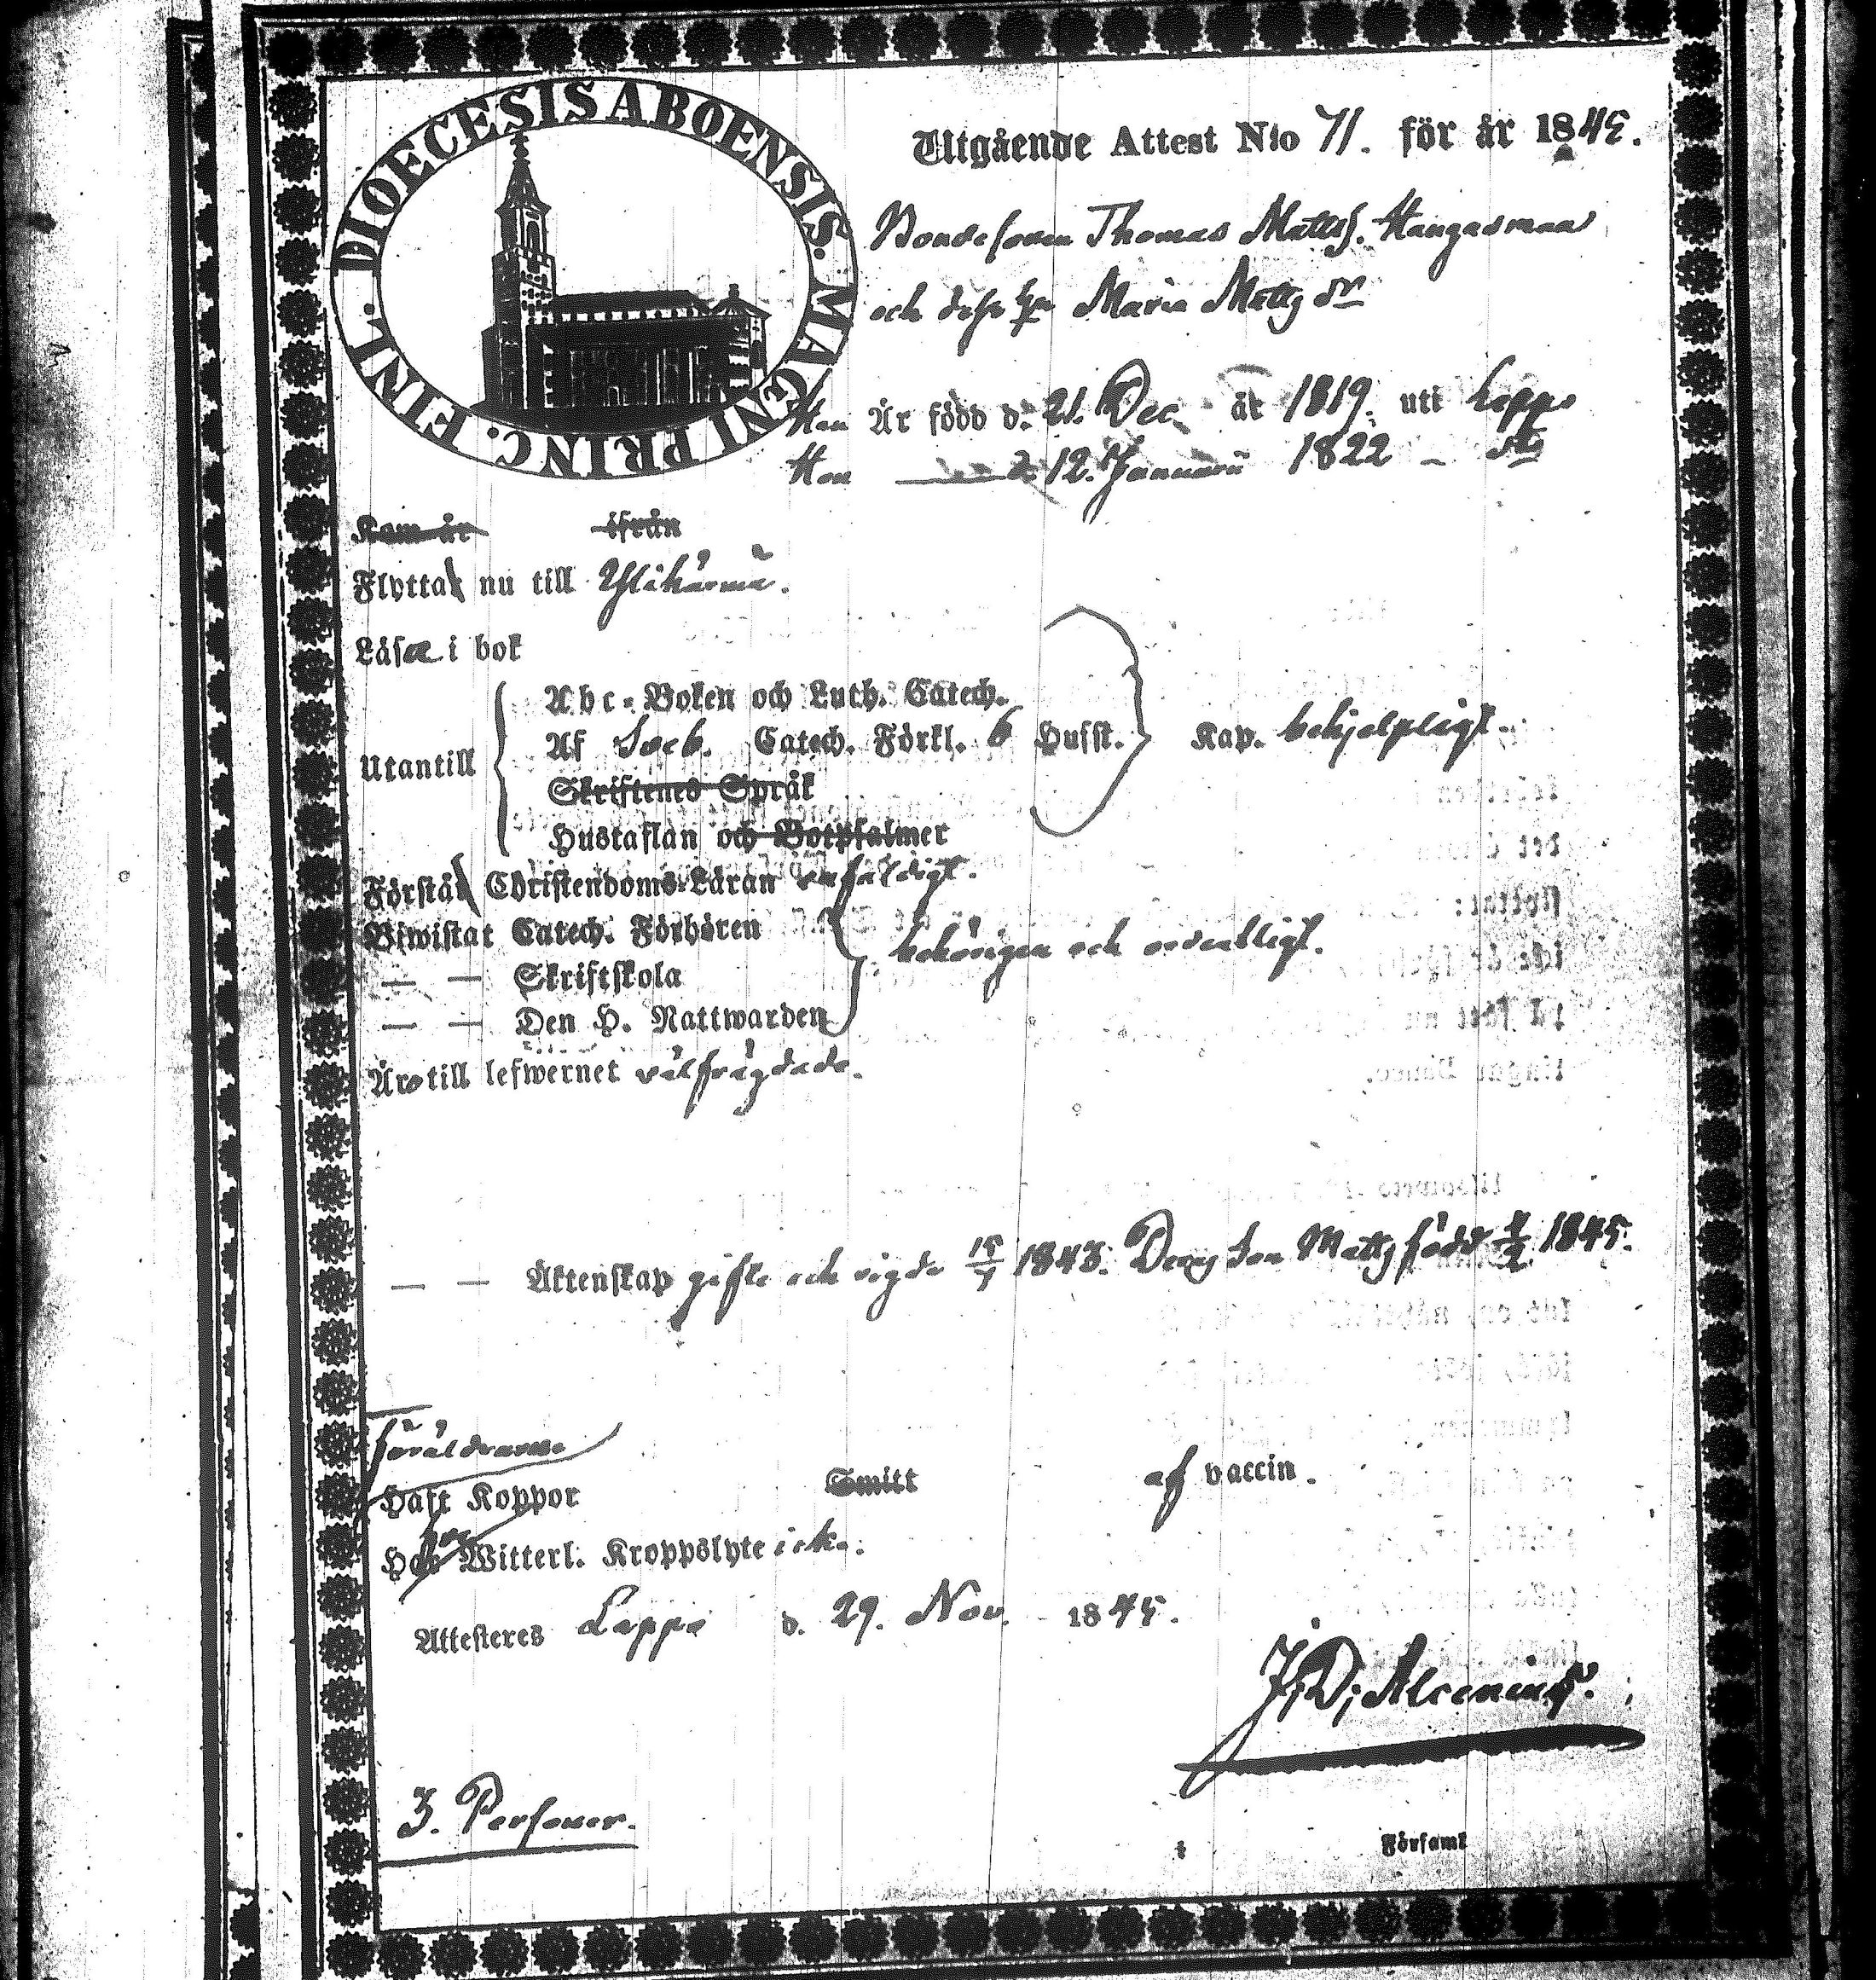 DIOECESIS ABOENSIS. MAGNI PRINC. FINL.
Utgående Attest N:o 71. för år 1845.
Bondesonen Thomas Mattss. Kangasmaa
och dess hu Maria Matts dr
Han Är född d. 21. Dec. år 1819. uti Lappo
Hon d. 12. Januarii 1822 - dto
Kom år ifrån
Flytta nu till Ylihärmä.
Läsa i bok
Utantill
Abc-Boken och Luth. Catech.
Af Sveb. Catech. Förkl. 6 Hufst. Kap. behjelpligt.
Skriftenes Språk
Hustaflan och Botpsalmer
Förstå Christendoms-Läran enfaldigt.
Biwistat Catech. Förhören
— — Skriftskola behörigen och ordentligt.
— — Den H. Nattwarden
Äro till lefwernet välfrägdade.
— — Äktenskap gifte och vigde 15/1 1843. Deras son Matts född 4/2 1845.
Föräldrarne
Haft Koppor Smitt af vaccin.
Hafva Witterl. Kroppslyte icke.
Attesteres Lappo d. 29. Nov. 1845.
J. D. Alcenius.
3. Personer.
i Församl